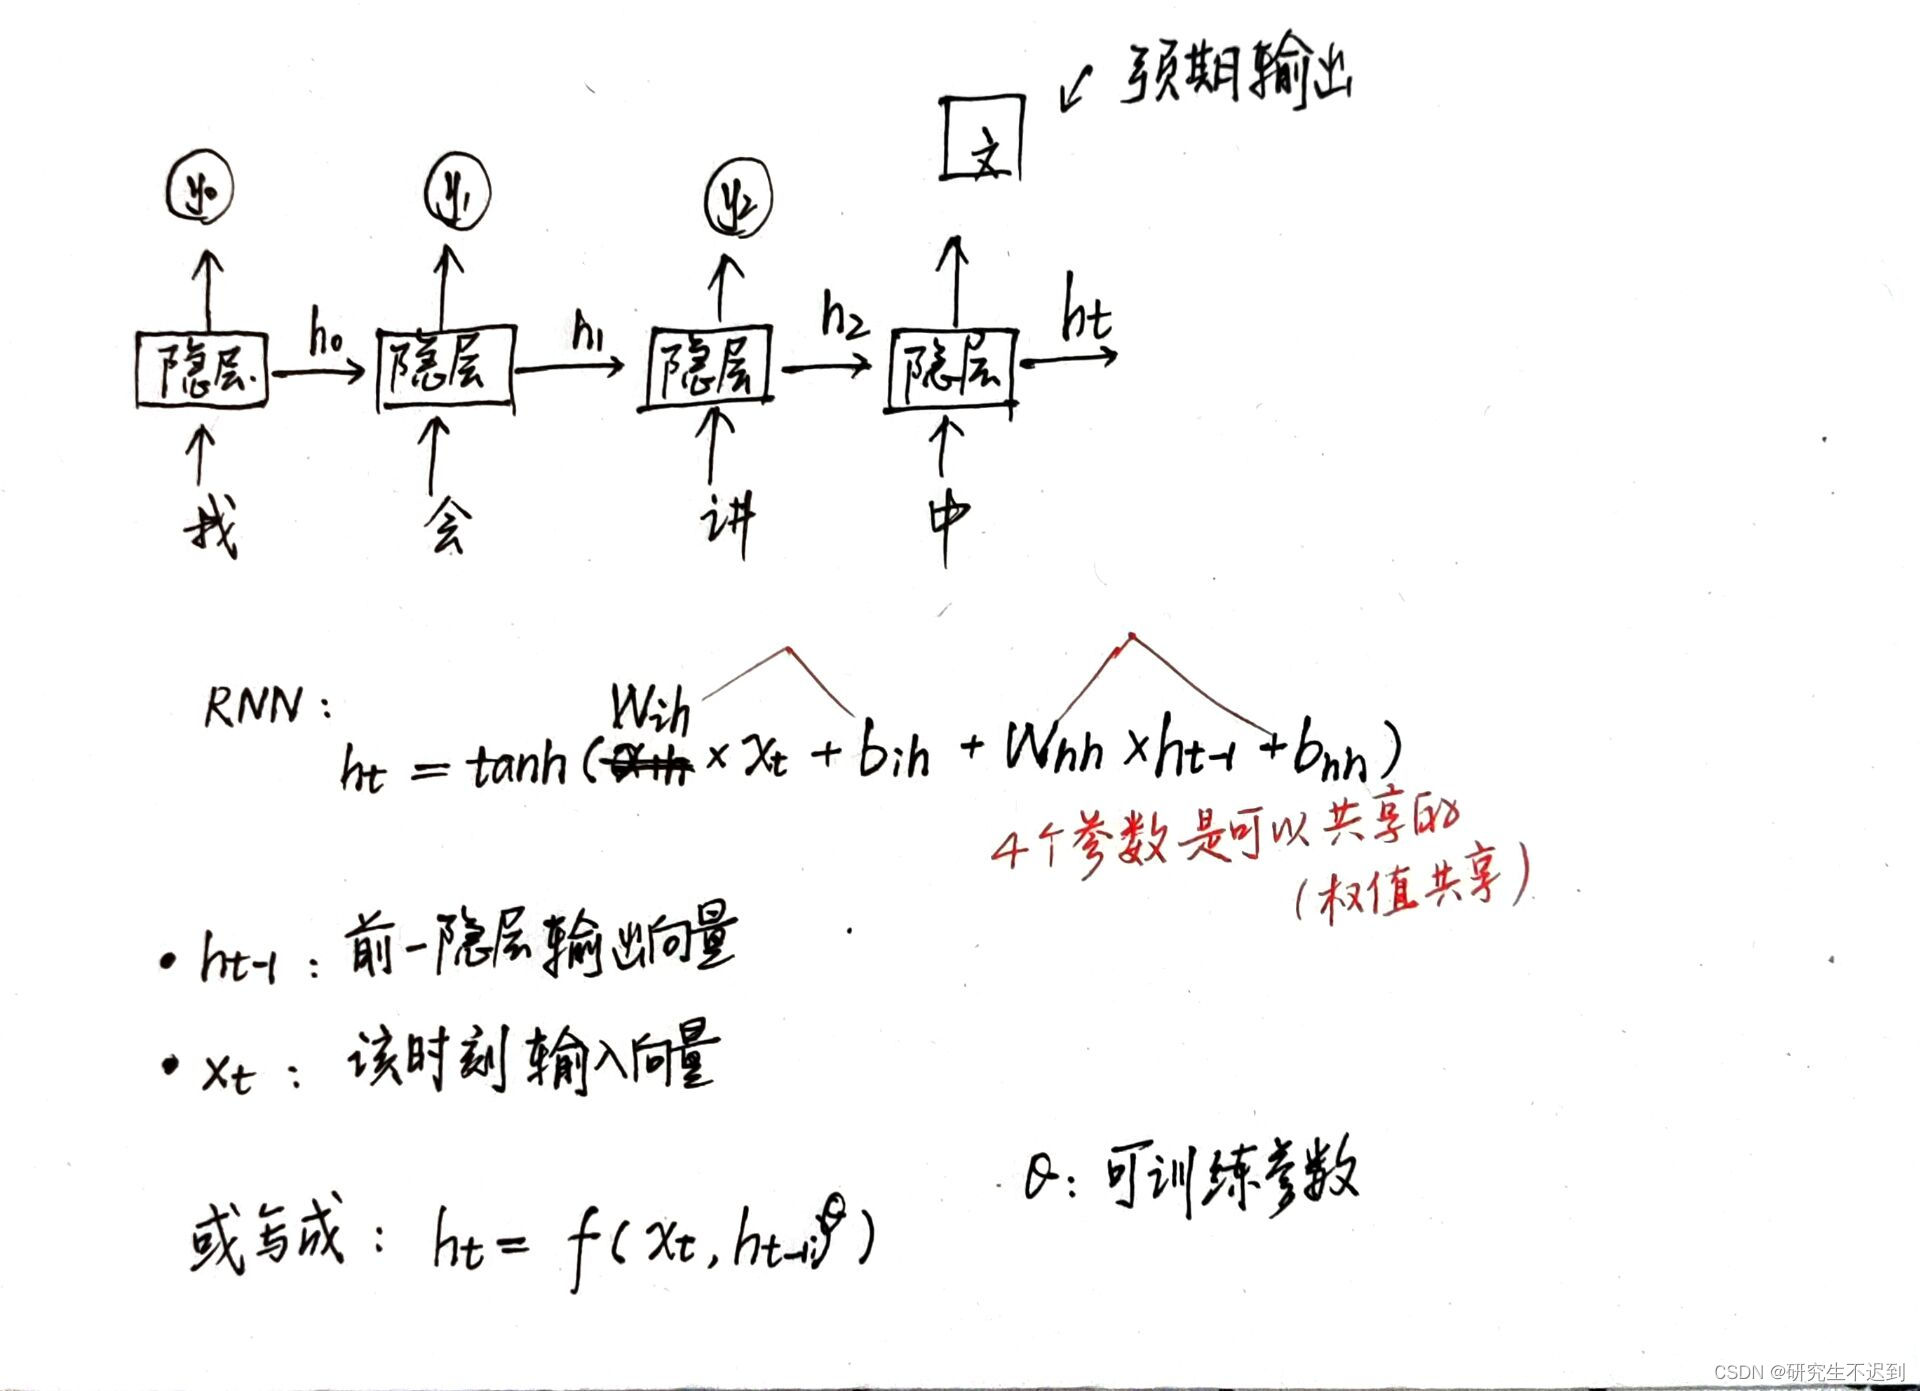 预期输出
文
y₀ y₁ y₂
h₀ h₁ h₂ hₜ
隐层 隐层 隐层 隐层
我 会 讲 中
RNN:
Wih
hₜ = tanh( × xₜ + bih + Whh × hₜ₋₁ + bhh)
4个参数是可以共享的
(权值共享)
• hₜ₋₁: 前一隐层输出向量
• xₜ: 该时刻输入向量
θ: 可训练参数
或写成: hₜ = f(xₜ, hₜ₋₁; θ)
CSDN @研究生不迟到